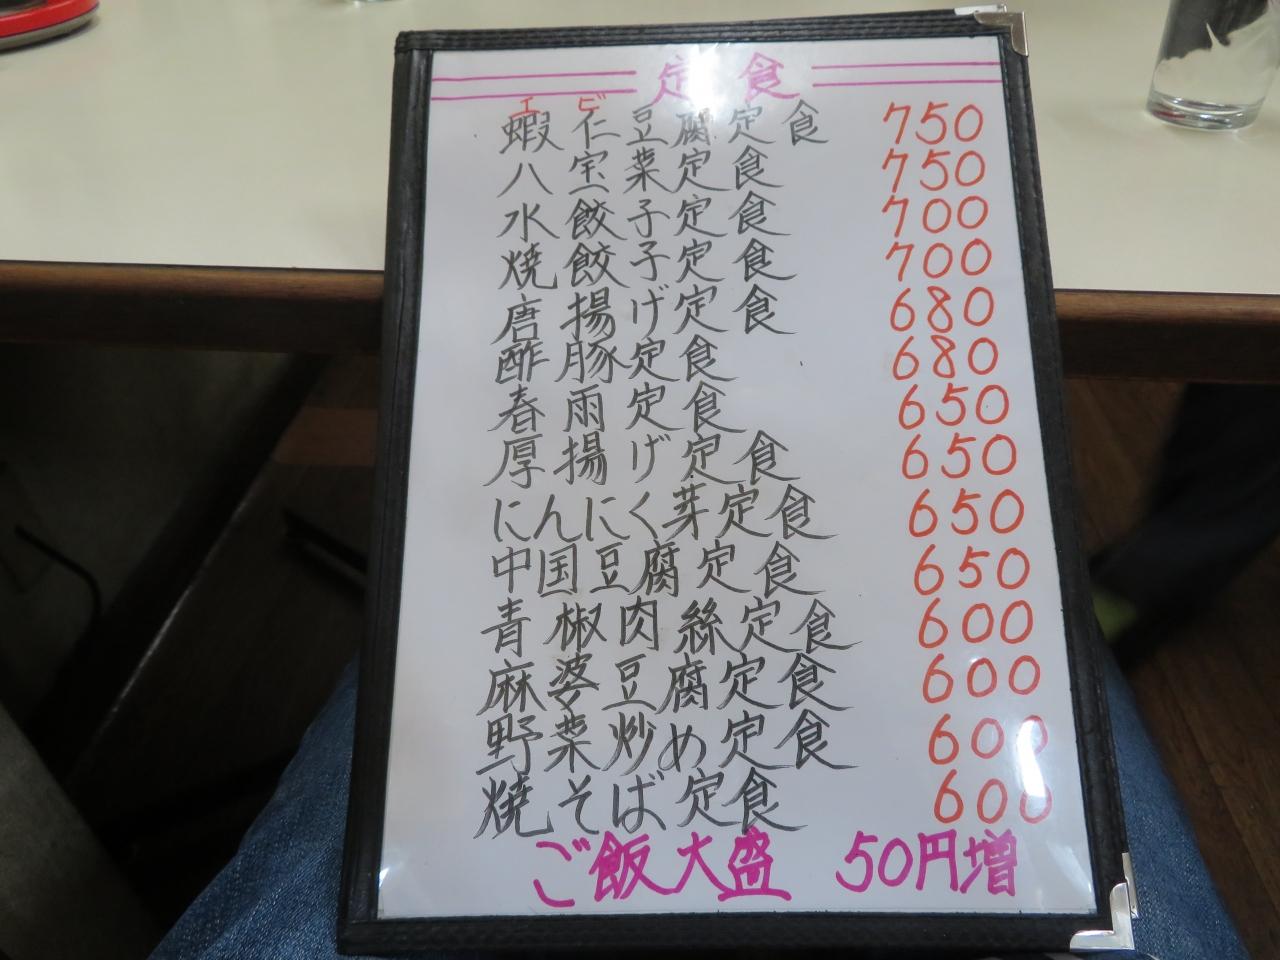 定食
エビ
蝦仁豆腐定食 750
八宝菜定食 750
水餃子定食 700
焼餃子定食 700
唐揚げ定食 680
酢豚定食 680
春雨定食 650
厚揚げ定食 650
にんにく芽定食 650
中国豆腐定食 650
青椒肉絲定食 600
麻婆豆腐定食 600
野菜炒め定食 600
焼そば定食 600
ご飯大盛 50円増